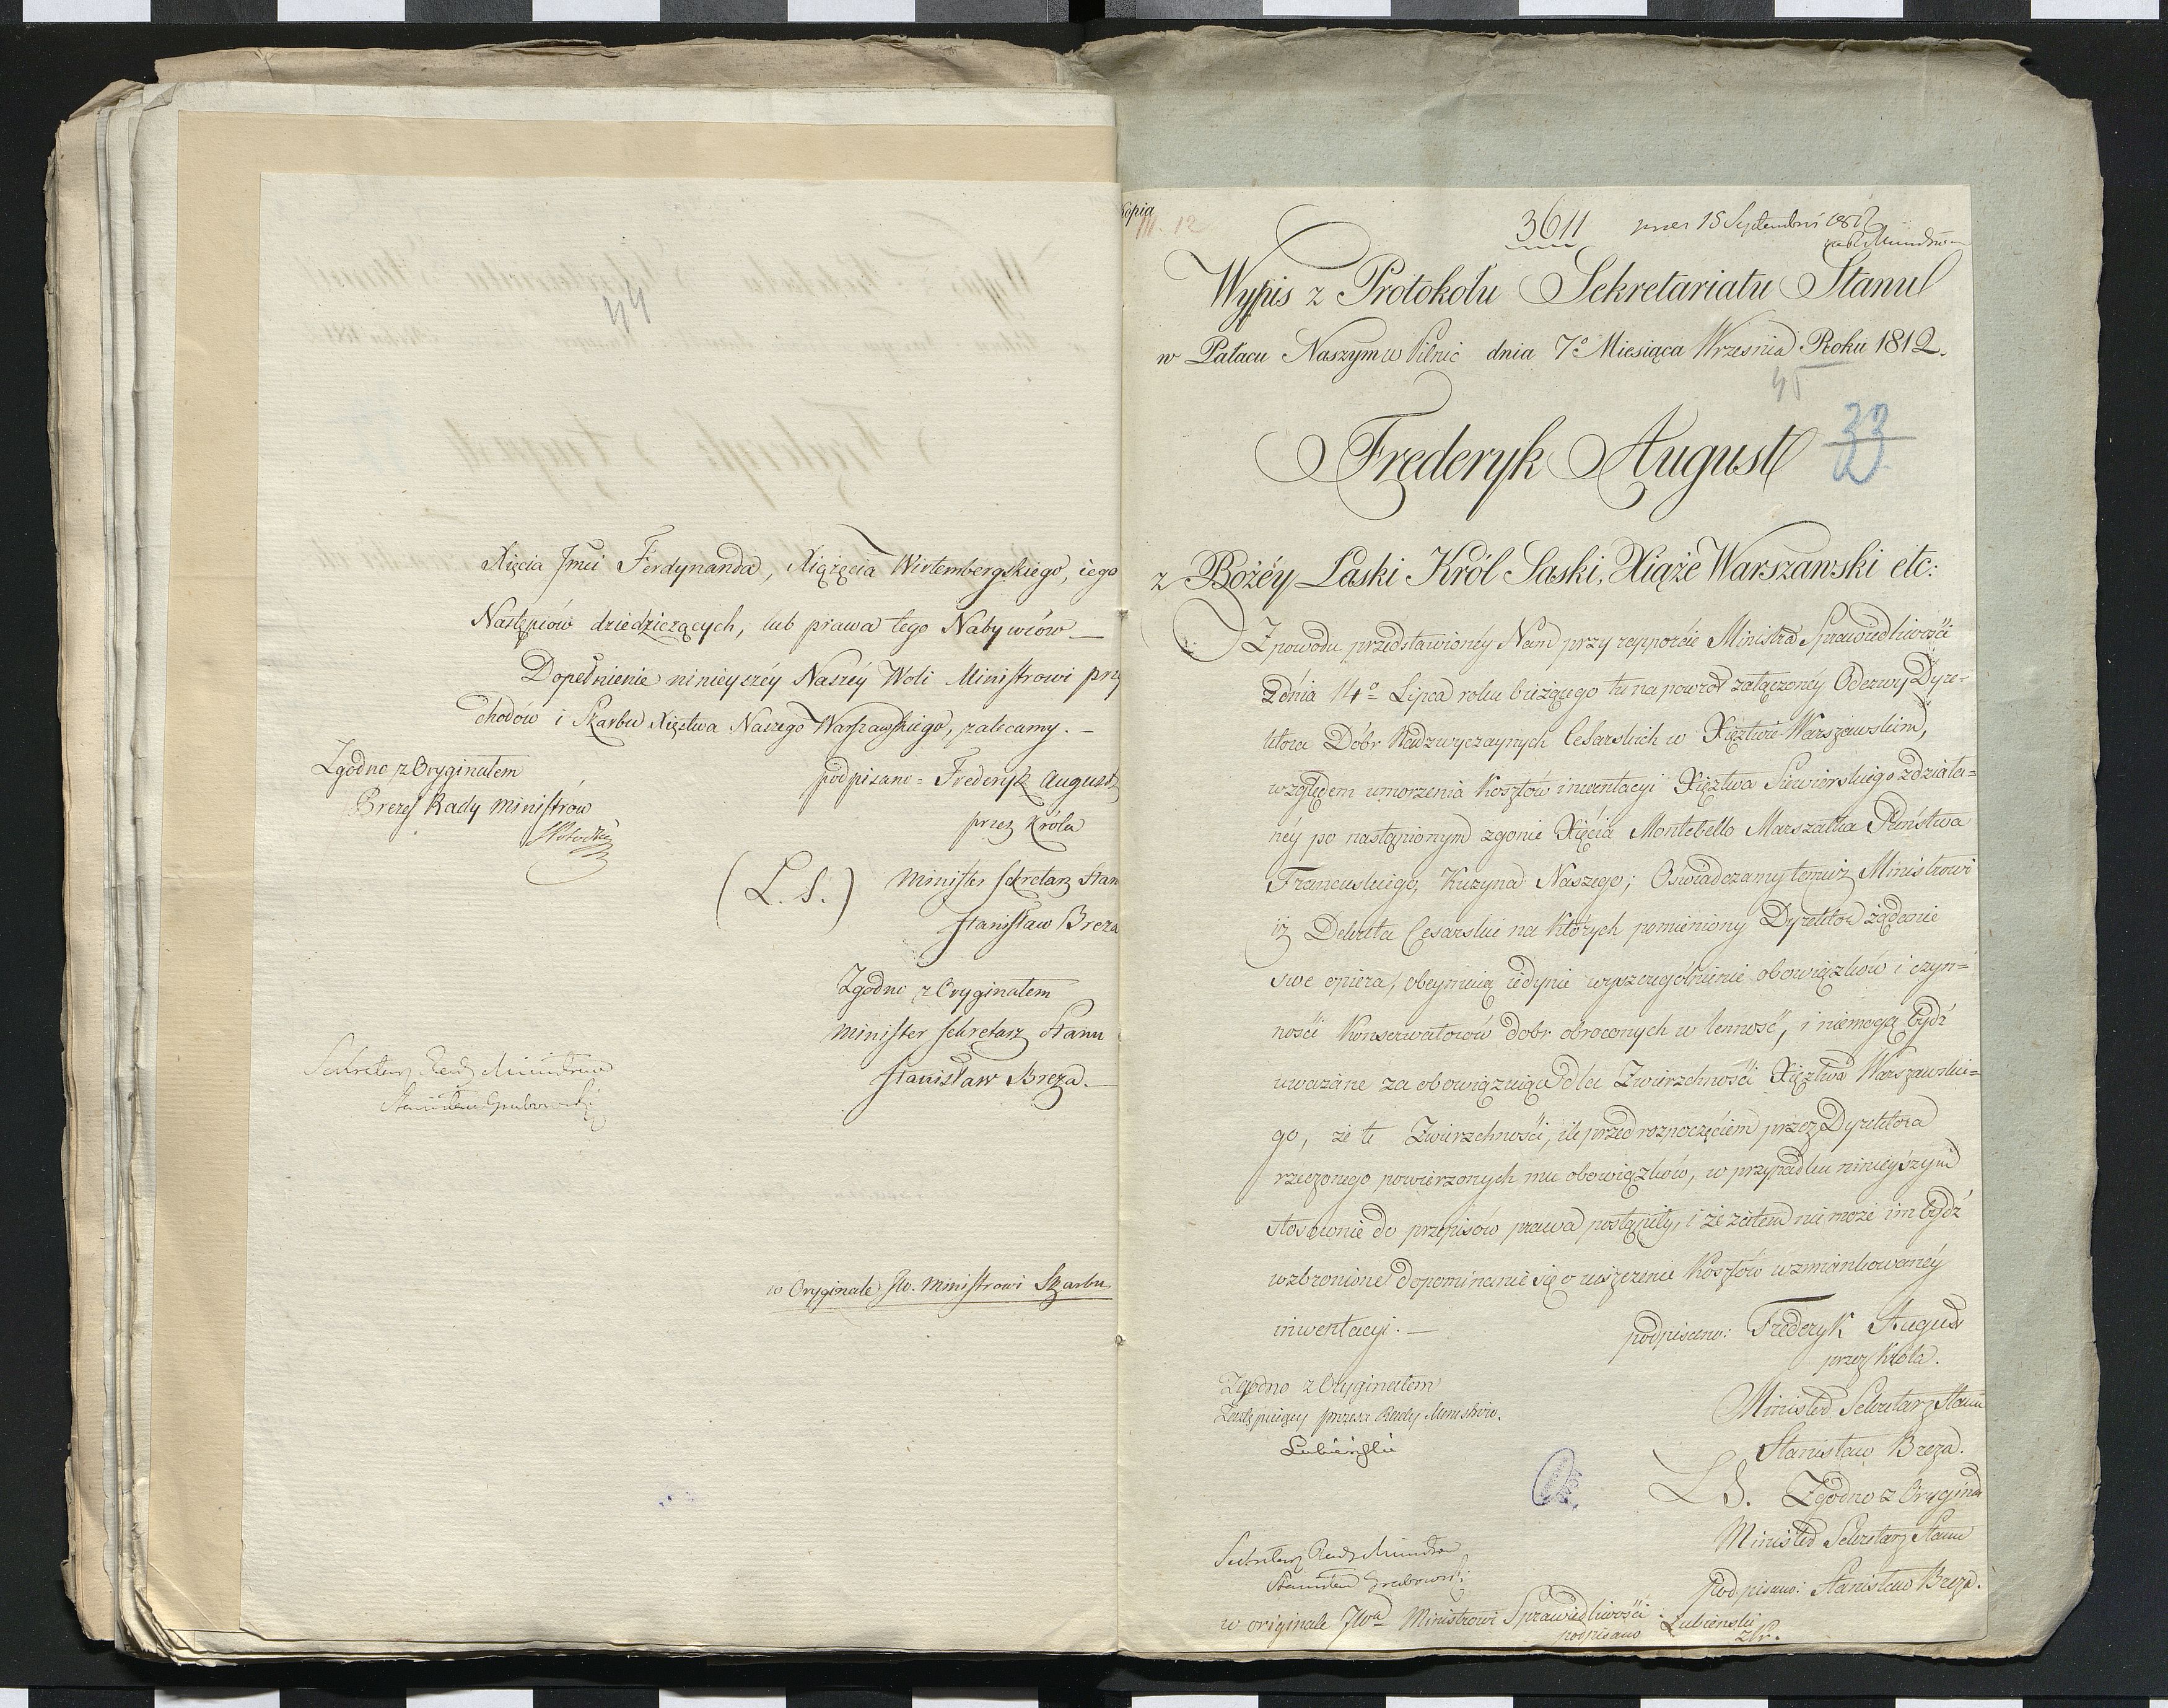 44
Xięcia Jmci Ferdynanda, Xiążęcia Wirtembergskiego, iego
Następców dziedziczących, lub prawa tego Nabywców —
Dopełnienie ninieyszéy Naszéy Woli Ministrowi przy
chodów i Skarbu Xięstwa Naszego Warszawskiego, zalecamy. —
Zgodno z Oryginałem
Prezes Rady Ministrów
podpisano = Frederyk August
przez Króla
(L. S.)
Minister Sekretarz Stan
Stanisław Breza
Zgodno z Oryginałem
Minister Sekretarz Stanu
Stanisław Breza. —
Sekretarz Rady Ministrów
Stanisław Grabowski
w Oryginale JW. Ministrowi Skarbu
Kopia
12
3611
15 Septembris 1812
Wypis z Protokołu Sekretariatu Stanu
w Pałacu Naszym w Pilnic dnia 7º Miesiąca Września Roku 1812.
45
Frederyk August
33
z Bożéy Łaski Król Saski, Xiąże Warszawski etc:
Z powodu przedstawionéy Nam przy rapporcie Ministra Sprawiedliwości
z dnia 14º Lipca roku bieżącego tu na powrót załączonéy Odezwy Dyre-
ktora Dóbr Nadzwyczaynych Cesarskich w Xięztwie Warszawskim,
względem umorzenia Kosztów inwentacyi Xięztwa Siewierskiego zdziała=
néy po nastąpionym zgonie Xięcia Montebello Marszałka Państwa
Francuskiego, Kuzyna Naszego; Oswiadczamy temuż Ministrowi
iż Dekreta Cesarskie na których pomieniony Dyrektor żądanie
swe opiera, obeymuią iedynie wyszczególnienie obowiązków i czyn=
ności Konserwatorów dobr obroconych w lenność, i niemogą bydź
uważane za obowiązuiące dla Zwierzchności Xięztwa Warszawskie=
go, że te Zwierzchności, ile przed rozpoczęciem przez Dyrektora
rzeczonego powierzonych mu obowiązków, w przypadku ninieyszym
stosownie do przepisów prawa postąpiły, i że zatem nie może im bydź
wzbronione dopominanie się o uiszczenie Kosztów wzmiankowanéy
inwentacyi. —
podpisano: Frederyk August
przez Króla.
Zgodno z Oryginałem
Zastępuiący prezesa Rady Ministrów.
Lubieński
Minister Sekretarz Stanu
Stanisław Breza.
L S. Zgodno z Orygina
Minister Sekretarz Stanu
Podpisano: Stanisław Breza.
Sekretarz Rady Ministrów
Stanisław Grabowski
w originale JWu Ministrowi Sprawiedliwości
podpisano Lubienski